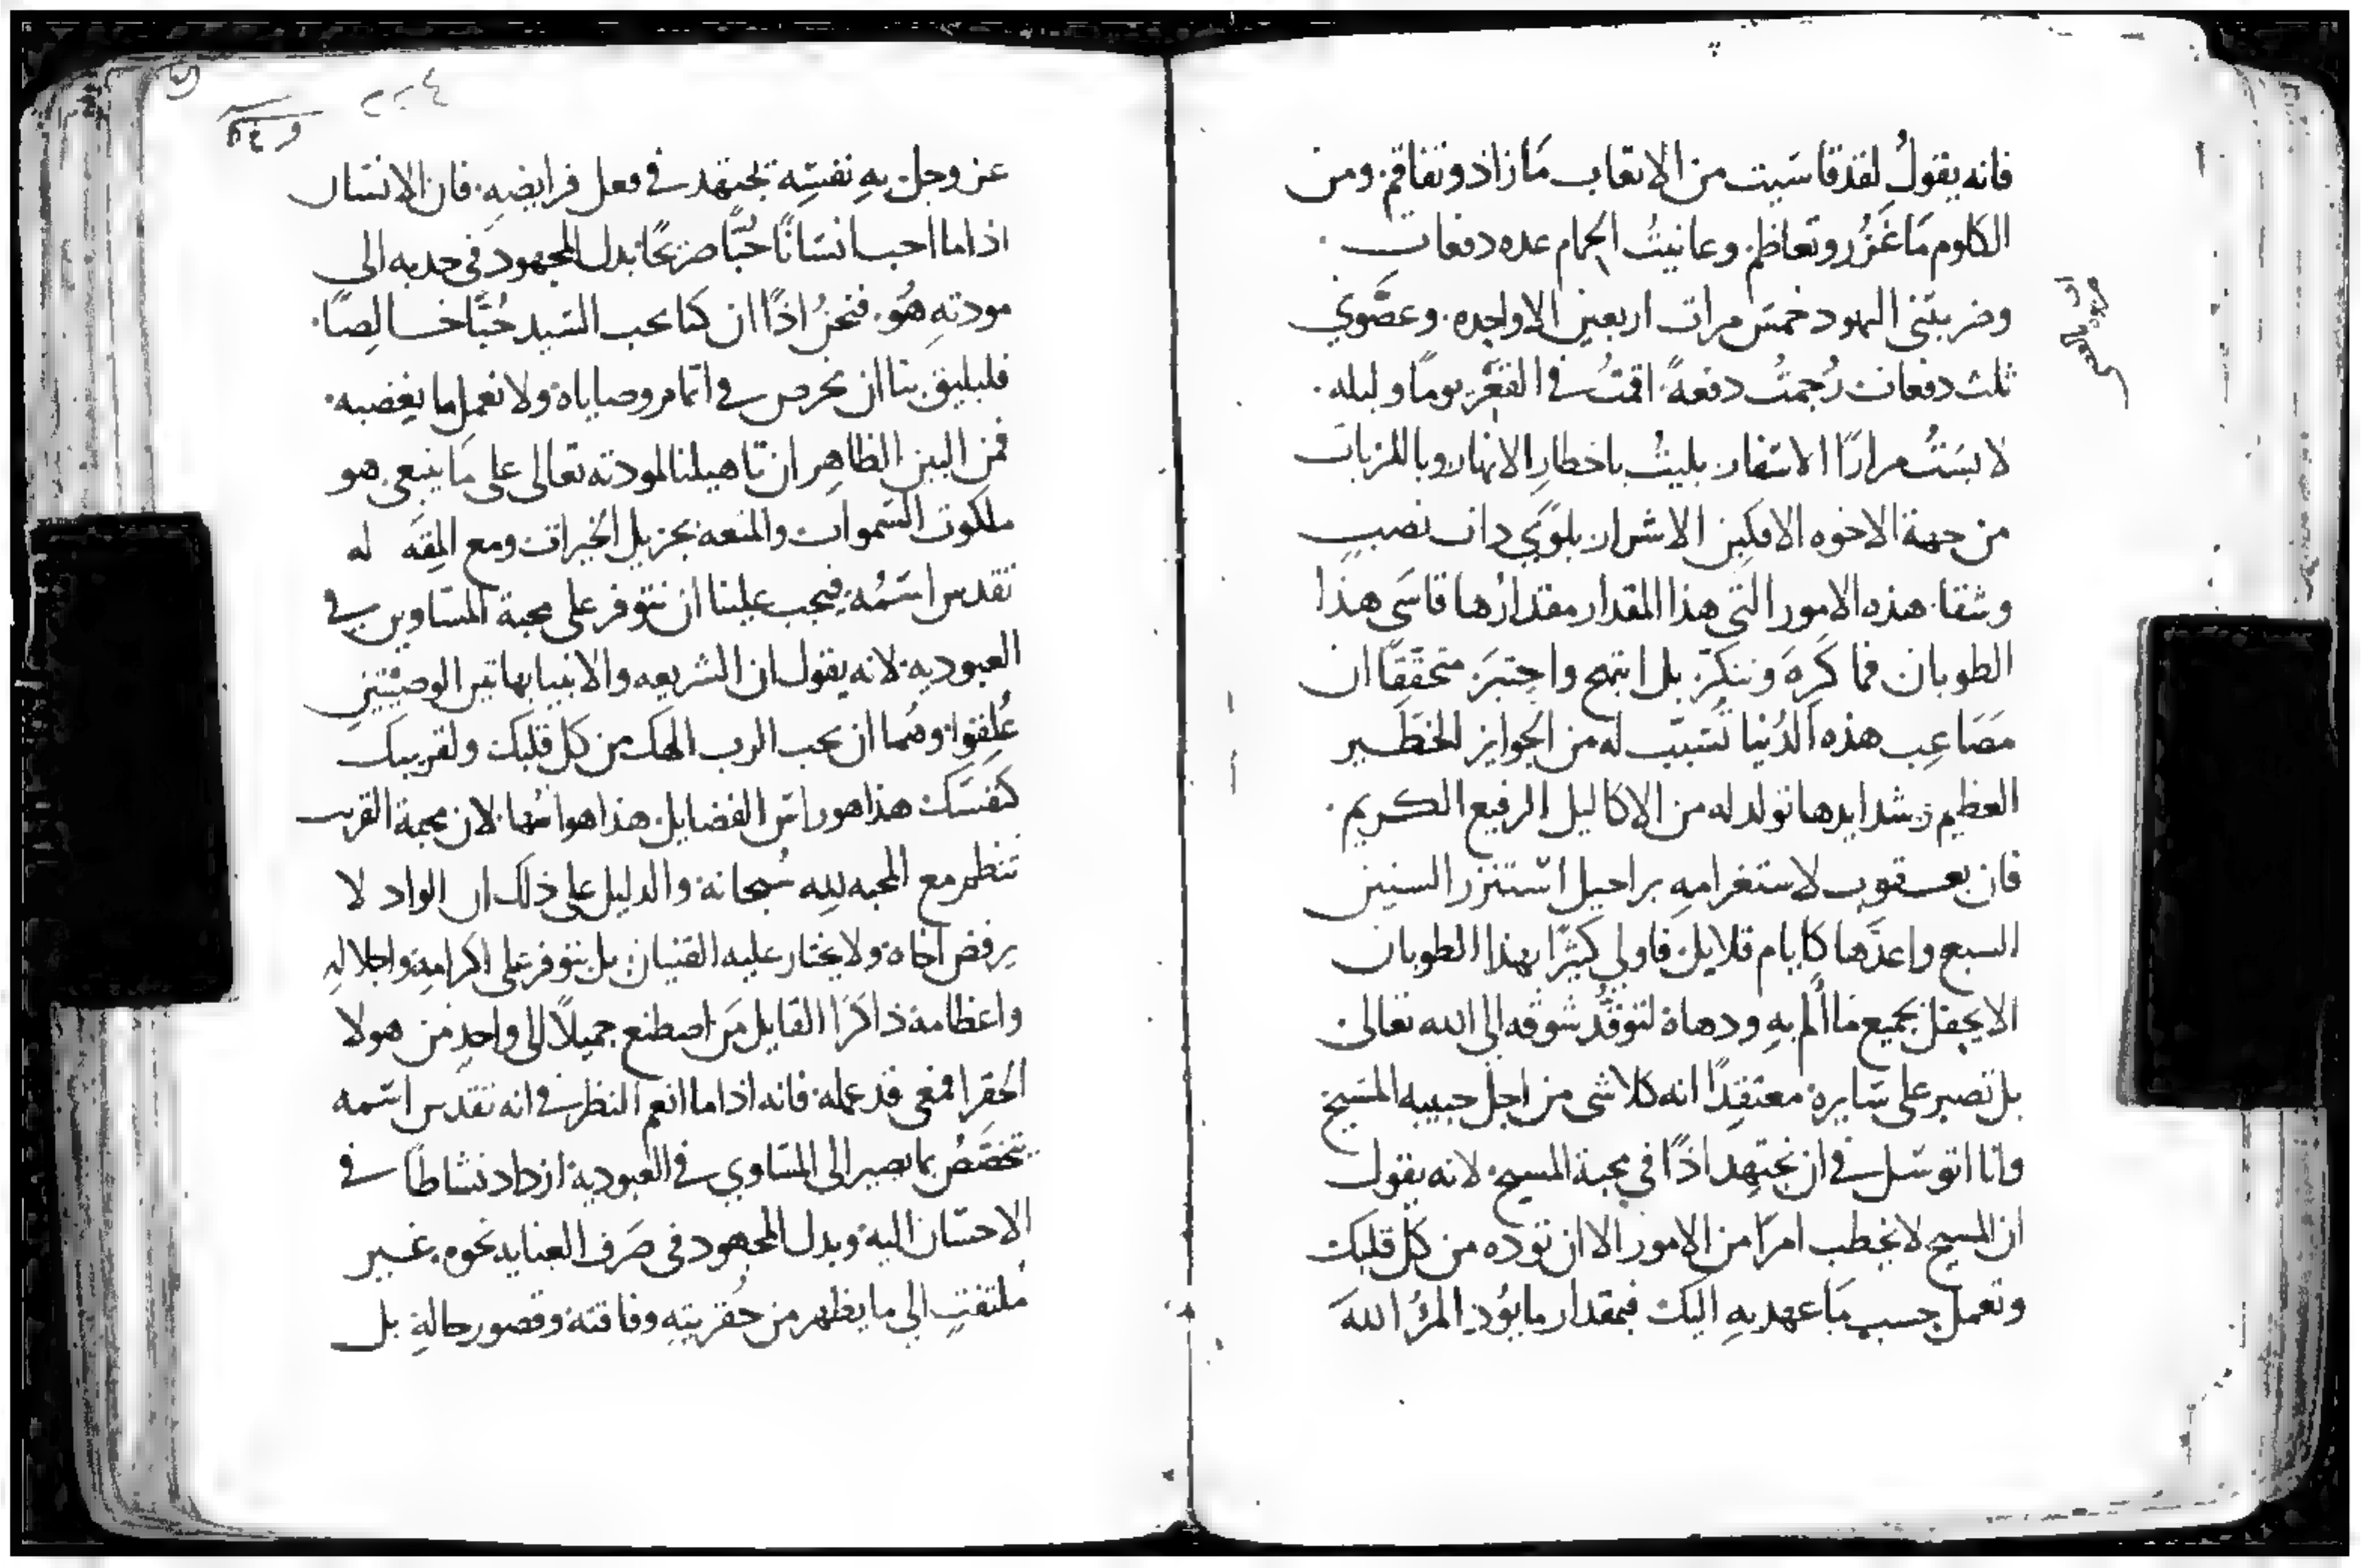 فانه يقولُ لقد قاسَيت من الاتعاب مَا زاد وتفاقم. ومن
الكلوم مَا غَزُر وتعاظم. وعانيتُ الحمام عده دفعات.
وضربتني اليهود خمسَ مرات اربعين الا واحِده. وعصَّوني
ثلث دفعات رُجمتُ دفعةً. اقمتُ في القَعْر يومًا وليله.
لابَسَتُ مرارًا الاسَفار. بليتُ باخطار الانهار وبالمزيات
من جهة الاخوه الافكين الاشرار. بلوَي ذات نصبٍ
وشقا. هذه الامور التي هذا المقدار مقدارُها قاسَى هذا
الطوبان. فما كَرِهَ وتنكرَ. بل ابتهج واجتبَرَ. متحقَقًا ان
مَصَاعِب هذه الدُنيا تسَبّب له من الجوايز الخَطَير
العظيم. وشدايدها تولد له من الاكاليل الرفيع الكريم.
فان يعقوب لاستغرامهِ براحيل استنزر السنين
السبع واعدَّها كايام قلايل. فاولي كثيرًا بهذا الطوبان
الا يحفل بجميع ما المَ بهِ ودهاه. لتوقُّد شوقه الى الله تعالى.
بل تصبر على سَايره. معتقِدًا انه كلا شى من اجل حبيبه المسَيح
وانا اتوسَل في ان نجتهِد اذًا في محبة المسيح. لانه يقول
ان المسيح لا يخطب امرًا من الامور الا ان توده من كل قلبك
وتعمل حسب مَا عهد بهِ اليك. فبمقدار ما يوُد المرُ اللهَ
عز وجل. بهِ نفسِه تجتهد في فعل فرايضِهِ. فان الانسَان
اذا ما احب انسَانًا حُبًّا صريحًا. بدل المجهود في جدبه الى
مودتهِ هُو. فنحنُ اذًا ان كنا نحب السَيد حُبًّا خالِصًا.
فليليق بنا ان نحرص في اتمام وصاياه. ولا نعمل ما يغضبه.
فمن البين الظاهِر ان تاهيلنا لمودته تعالى على مَا ينبغي. هو
ملكوت السَموات والمتعه بجزيل الخيرات ومع المِقَه له
تقدس اسَمُه. فيجب علينا ان نتوفر على محبة المسَاوين في
العبوديه. لانه يقول ان الشريعه والانبيا بهاتين الوصيتين
عُلِقوا. وهَما ان تحب الرب الهك من كل قلبك ولقريبك
كنفسَك هذا هو راسَ الفضايل. هذا هو اسُها. لان محبة القريب
تنظم مع المحبه لله سُبحانه. والدليل على ذلك ان الواد لا
يرفض اخاه. ولا يختار عليه القنيان. بل يتوفر على اكرامِهِ واجلالهِ
واعظامه. ذاكرَا القايل مَن اصطنع جميلًا الى واحدٍ من هولا
الحُقرا فمعي قد عمله. فانه اذا ما انعم النظر في انه تقدس اسَمه
يتخصَّصُ بما يصير الى المسَاوي في العبوديه. ازداد نشاطًا في
الاحسَان اليه. وبدل المجهود في صَرف العنايه نحوه. غير
ملتفتٍ الي ما يظهر من حُقريتهِ وفاقته وقصور حالهِ بل